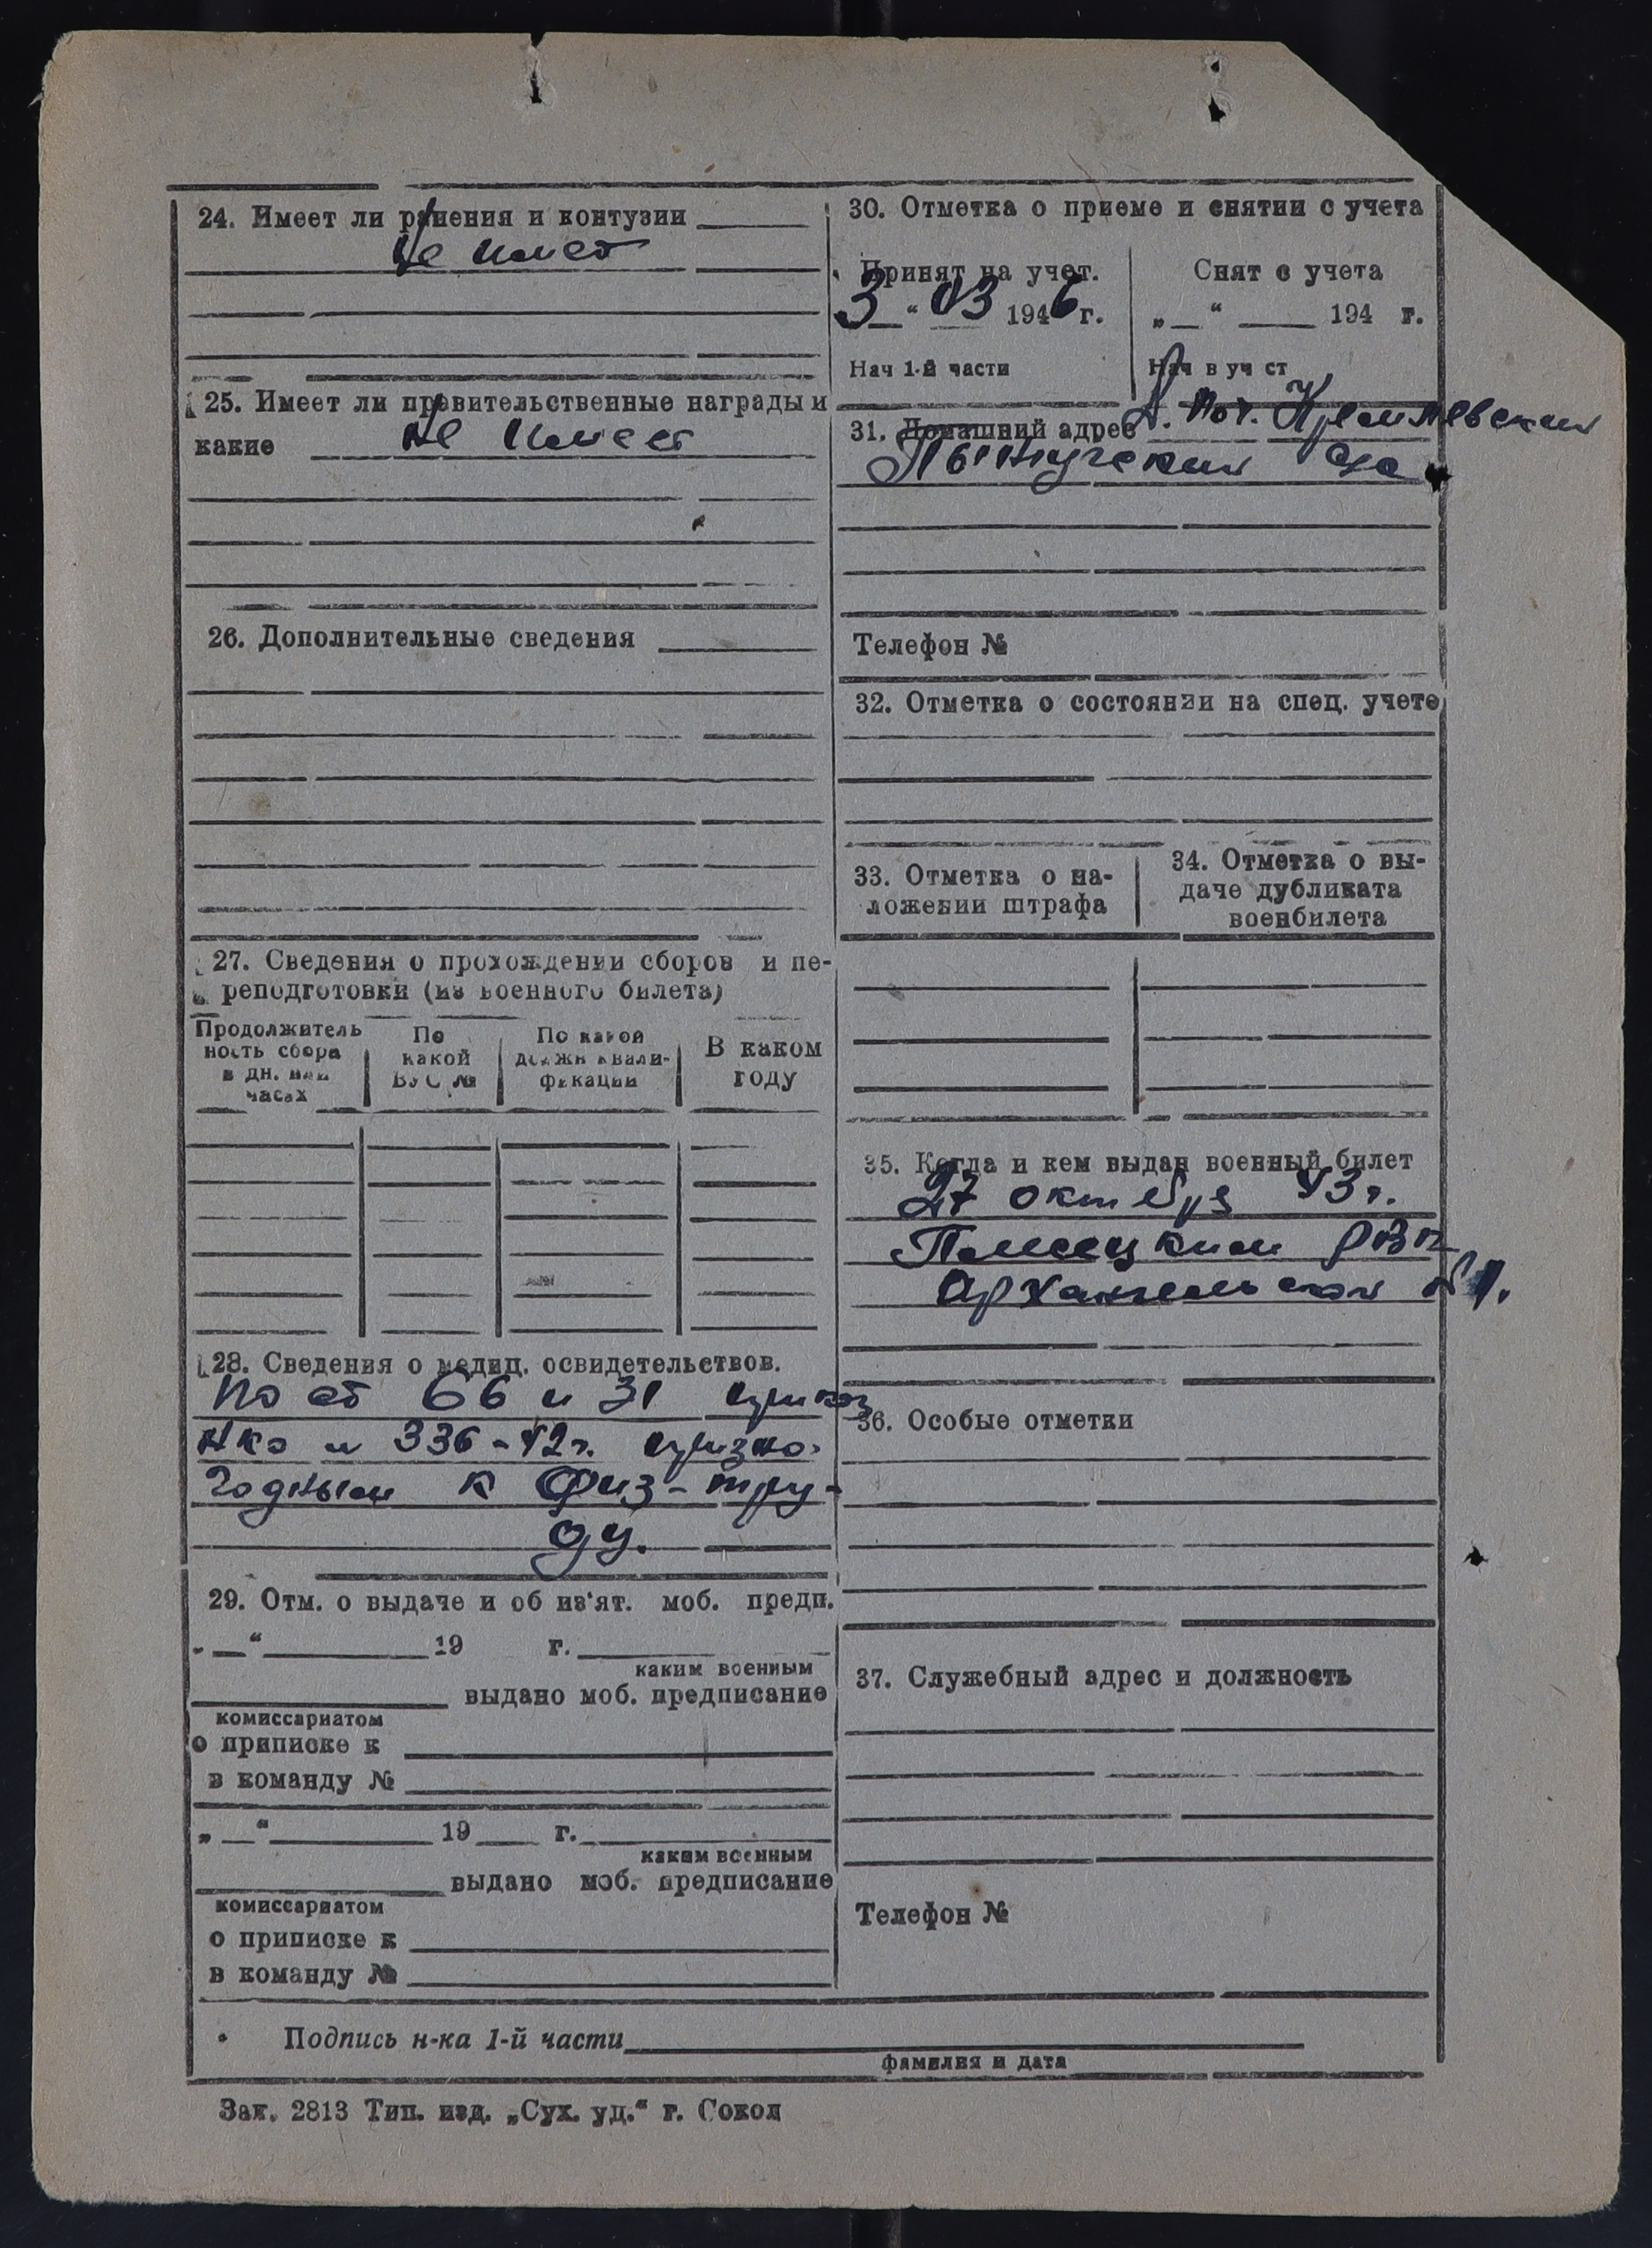 24. Имеет ли ранения и контузии
не имеет
25. Имеет ли правительственные награды и
какие не имеет
26. Дополнительные сведения
27. Сведения о прохождении сборов и пе-
реподготовки (из военного билета)
Продолжитель
ность сбора
в дн. или
часах
По
какой
ВУС №
По какой
должн квали-
фикации
В каком
году
28. Сведения о медиц. освидетельствов.
по ст 66 и 31 приказ
НКО № 336-42г. призно-
годным к физ-тру-
ду.
29. Отм. о выдаче и об из'ят. моб. предп.
„ “ 19 г.
каким военным
выдано моб. предписание
комиссариатом
о приписке к
в команду №
„ “ 19 г.
каким военным
выдано моб. предписание
комиссариатом
о приписке к
в команду №
30. Отметка о приеме и снятии с учета
Принят на учет.
3 “ 03 1946 г.
Нач 1-й части
Снят с учета
„ “ 194 г.
Нач в уч ст
31. Домашний адрес
с/с
Телефон №
32. Отметка о состоянии на спец. учете
33. Отметка о на-
ложении штрафа
34. Отметка о вы-
даче дубликата
военбилета
35. Когда и кем выдан военный билет
27 октября 43 г.
РВК
Архангельской обл.
36. Особые отметки
37. Служебный адрес и должность
Телефон №
Подпись н-ка 1-й части
фамилия и дата
Зак. 2813 Тип. изд. „Сух. уд.“ г. Сокол